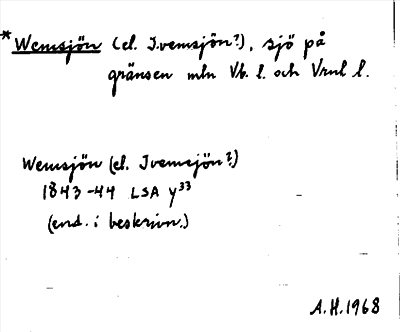 * Wemsjön (el. Ivemsjön?), sjö på
gränsen mln Vb. l. och Vrml l.
Wemsjön (el. Ivemsjön?)
1843-44 LSA y³³
(end. i beskrivn.)
A.H. 1968